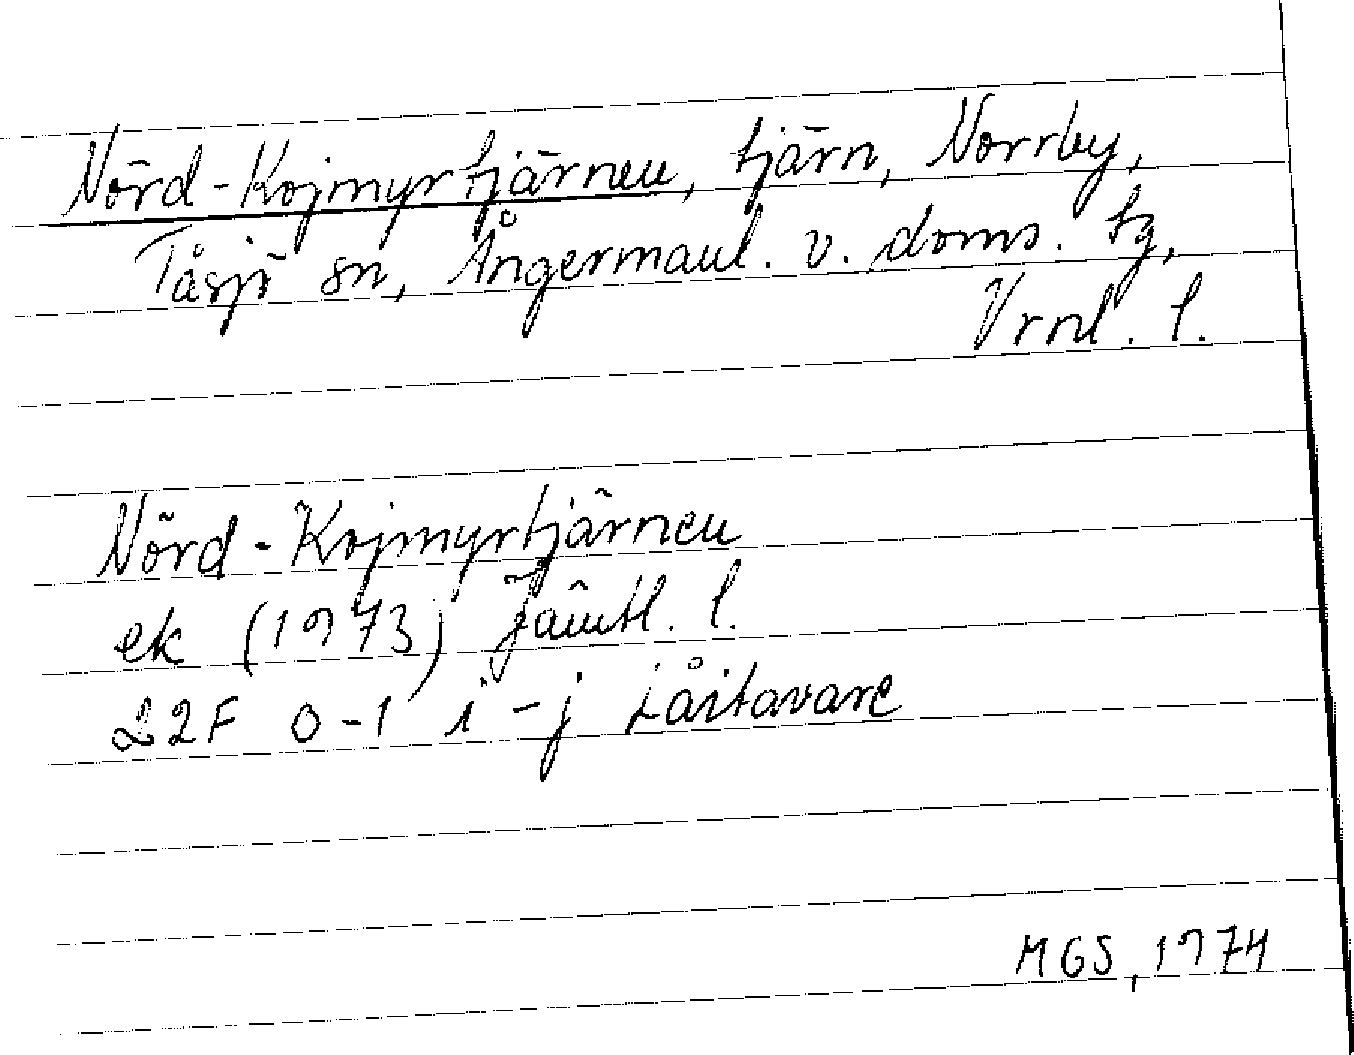 Nörd-Kojmyrtjärnen, tjärn, Norrby,
Tåsjö sn, Ångermanl. v. doms. tg,
Vrnl. l.
Nörd-Kojmyrtjärnen
ek (1973) Jämtl. l.
22F 0-1 i-j Låitavare
MGS, 1974